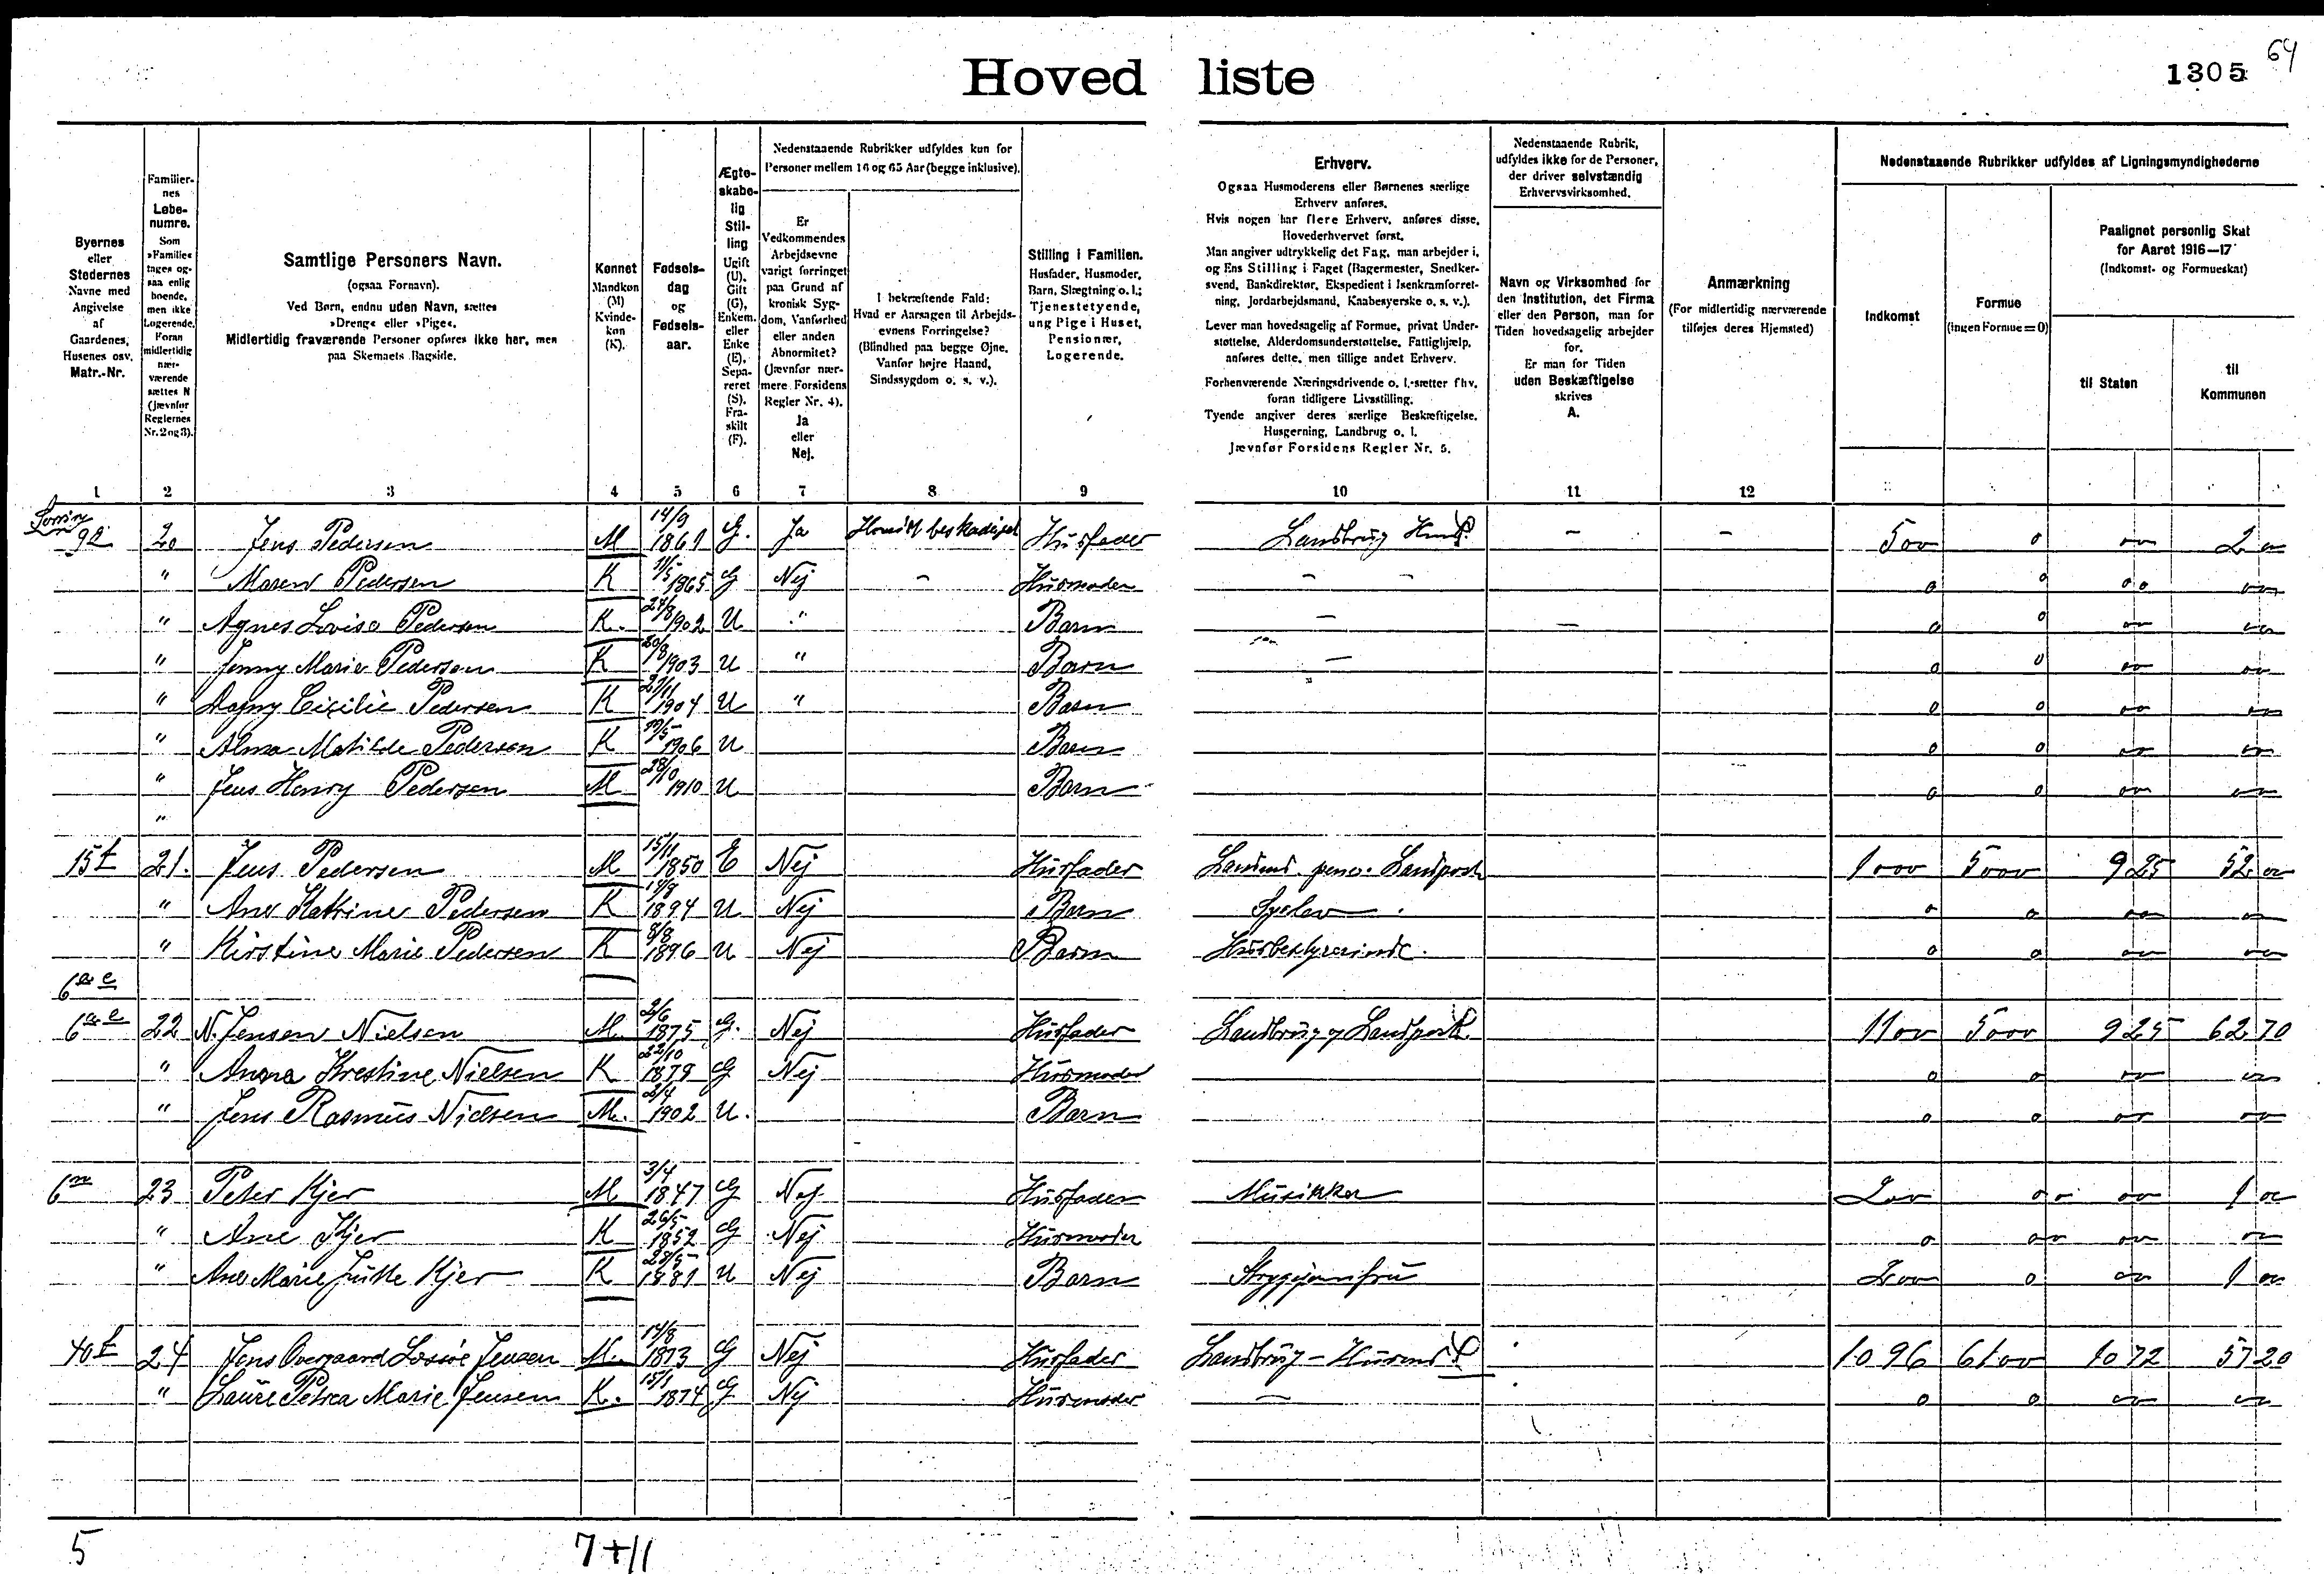 Hoved liste
1305
64
Byernes eller Stedernes Navne med Angivelse af Gaardenes, Husenes osv. Matr.-Nr.
Familiernes Løbenumre. Som »Familie« tages ogsaa enlig boende, men ikke Logerende. Foran midlertidig nærværende sættes N (Jævnfør Reglernes Nr. 2 og 3).
Samtlige Personers Navn.
(ogsaa Fornavn).
Ved Børn, endnu uden Navn, sættes
»Dreng« eller »Pige«.
Midlertidig fraværende Personer opføres ikke her, men
paa Skemaets Bagside.
Kønnet Mandkøn (M) Kvindekøn (K).
Fødselsdag og Fødselsaar.
Ægteskabelig Stilling Ugift (U), Gift (G), Enkem. eller Enke (E), Separeret (S). Fraskilt (F).
Nedenstaaende Rubrikker udfyldes kun for
Personer mellem 16 og 65 Aar (begge inklusive).
Er Vedkommendes Arbejdsevne varigt forringet paa Grund af kronisk Sygdom, Vanførhed eller anden Abnormitet? (Jævnfør nærmere Forsidens Regler Nr. 4). Ja eller Nej.
I bekræftende Fald:
Hvad er Aarsagen til Arbejdsevnens Forringelse?
(Blindhed paa begge Øjne, Vanfør højre Haand, Sindssygdom o. s. v.).
Stilling i Familien.
Husfader, Husmoder, Barn, Slægtning o. l.; Tjenestetyende, ung Pige i Huset, Pensionær, Logerende.
Erhverv.
Ogsaa Husmoderens eller Børnenes særlige
Erhverv anføres.
Hvis nogen har flere Erhverv, anføres disse,
Hovederhvervet først.
Man angiver udtrykkelig det Fag, man arbejder i,
og Ens Stilling i Faget (Bagermester, Snedkersvend, Bankdirektør, Ekspedient i Isenkramforretning, Jordarbejdsmand, Kaabesyerske o. s. v.).
Lever man hovedsagelig af Formue, privat Understøttelse, Alderdomsunderstøttelse, Fattighjælp,
anføres dette, men tillige andet Erhverv.
Forhenværende Næringsdrivende o. l. sætter fhv.
foran tidligere Livsstilling.
Tyende angiver deres særlige Beskæftigelse,
Husgerning, Landbrug o. l.
Jævnfør Forsidens Regler Nr. 5.
Nedenstaaende Rubrik,
udfyldes ikke for de Personer,
der driver selvstændig
Erhvervsvirksomhed.
Navn og Virksomhed for
den Institution, det Firma
eller den Person, man for
Tiden hovedsagelig arbejder
for.
Er man for Tiden
uden Beskæftigelse
skrives
A.
Anmærkning
(For midlertidig nærværende
tilføjes deres Hjemsted)
Nedenstaaende Rubrikker udfyldes af Ligningsmyndighederne
Indkomst
Formue
(ingen Formue = 0)
Paalignet personlig Skat
for Aaret 1916—17
(Indkomst- og Formueskat)
til Staten
til Kommunen
1 2 3 4 5 6 7 8 9 10 11 12
20 Jens Pedersen M 14/9 1861 G. Ja beskadiget Husfader Landbrug - - 500 0 2
" Maren Pedersen K 11/5 1865 G Nej - Husmoder - - 0 0 00
" Agnes Lovise Pedersen K. 24/8 1902 U " Barn - - 0 0
" Jenny Marie Pedersen K 20/8 1903 U " Barn - 0 0
" Dagny Cicilie Pedersen K 27/11 1904 U " Barn 0 0
" Alma Matilde Pedersen K 19/5 1906 U Barn 0 0
" Jens Henry Pedersen M 28/10 1910 U Barn 0 0
"
15f 21. Jens Pedersen M 15/11 1850 E Nej Husfader Landpost 1000 5000 9 25 52
" Ane Katrine Pedersen K 19/9 1894 U Nej Barn 0 0
" Kirstine Marie Pedersen K 8/8 1896 U Nej Barn Husbestyrerinde. 0 0
6ae
6ae 22 N. Jensen Nielsen M. 2/6 1875 G. Nej Husfader Landbrug og Landpost 1100 5000 9 25 62 70
" Anna Krestine Nielsen K 22/10 1879 G Nej Husmoder 0 0
" Jens Rasmus Nielsen M. 2/4 1902 U. Barn 0 0
6m 23 Peter Kjer M 3/4 1847 G Nej Husfader Musikker 200 0 1
" Ane Kjer K 26/5 1852 G Nej Husmoder 0
" Ane Marie Jutte Kjer K 28/5 1881 U Nej Barn Strygejomfru 200 0 1
40f 24 Jens Overgaard Jensen M. 14/8 1873 G Nej Husfader Landbrug - Husmd 1096 6100 10 72 57 20
" Laure Petrea Marie Jensen K. 15/1 1874 G Nej Husmoder - 0 0
5
7+11